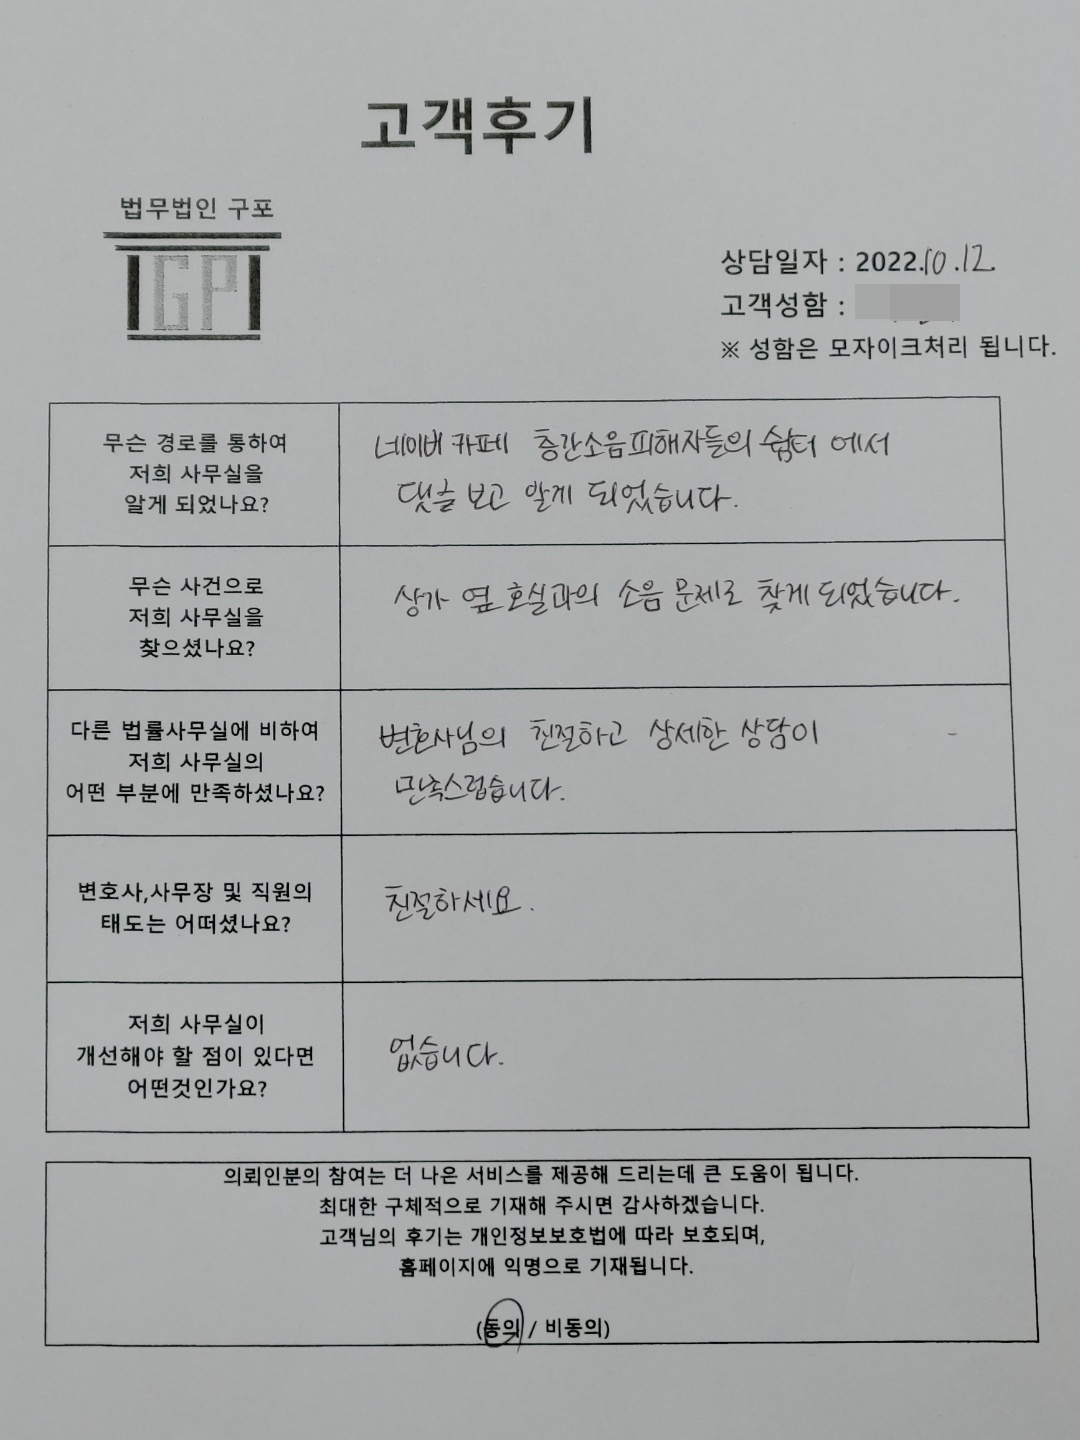 고객후기
법무법인 구포
GP
상담일자 : 2022.10.12.
고객성함 :
※ 성함은 모자이크처리 됩니다.
무슨 경로를 통하여
저희 사무실을
알게 되었나요?
네이버 카페 층간소음피해자들의 쉼터 에서
댓글 보고 알게 되었습니다.
무슨 사건으로
저희 사무실을
찾으셨나요?
상가 옆 호실과의 소음 문제로 찾게 되었습니다.
다른 법률사무실에 비하여
저희 사무실의
어떤 부분에 만족하셨나요?
변호사님의 친절하고 상세한 상담이
만족스럽습니다.
변호사,사무장 및 직원의
태도는 어떠셨나요?
친절하세요.
저희 사무실이
개선해야 할 점이 있다면
어떤것인가요?
없습니다.
의뢰인분의 참여는 더 나은 서비스를 제공해 드리는데 큰 도움이 됩니다.
최대한 구체적으로 기재해 주시면 감사하겠습니다.
고객님의 후기는 개인정보보호법에 따라 보호되며,
홈페이지에 익명으로 기재됩니다.
(동의 / 비동의)